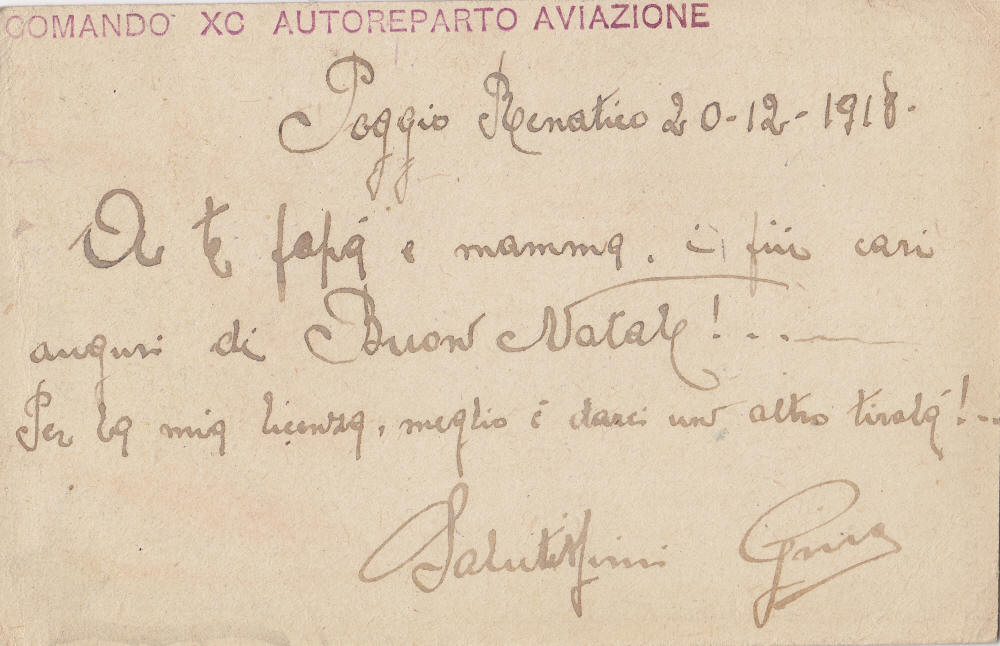 COMANDO XC AUTOREPARTO AVIAZIONE
Poggio Renatico 20-12-1918.
A te papà e mamma. i più cari
auguri di Buon Natale!...
Per la mia licenza, meglio è darci un altro !...
Salutissimi